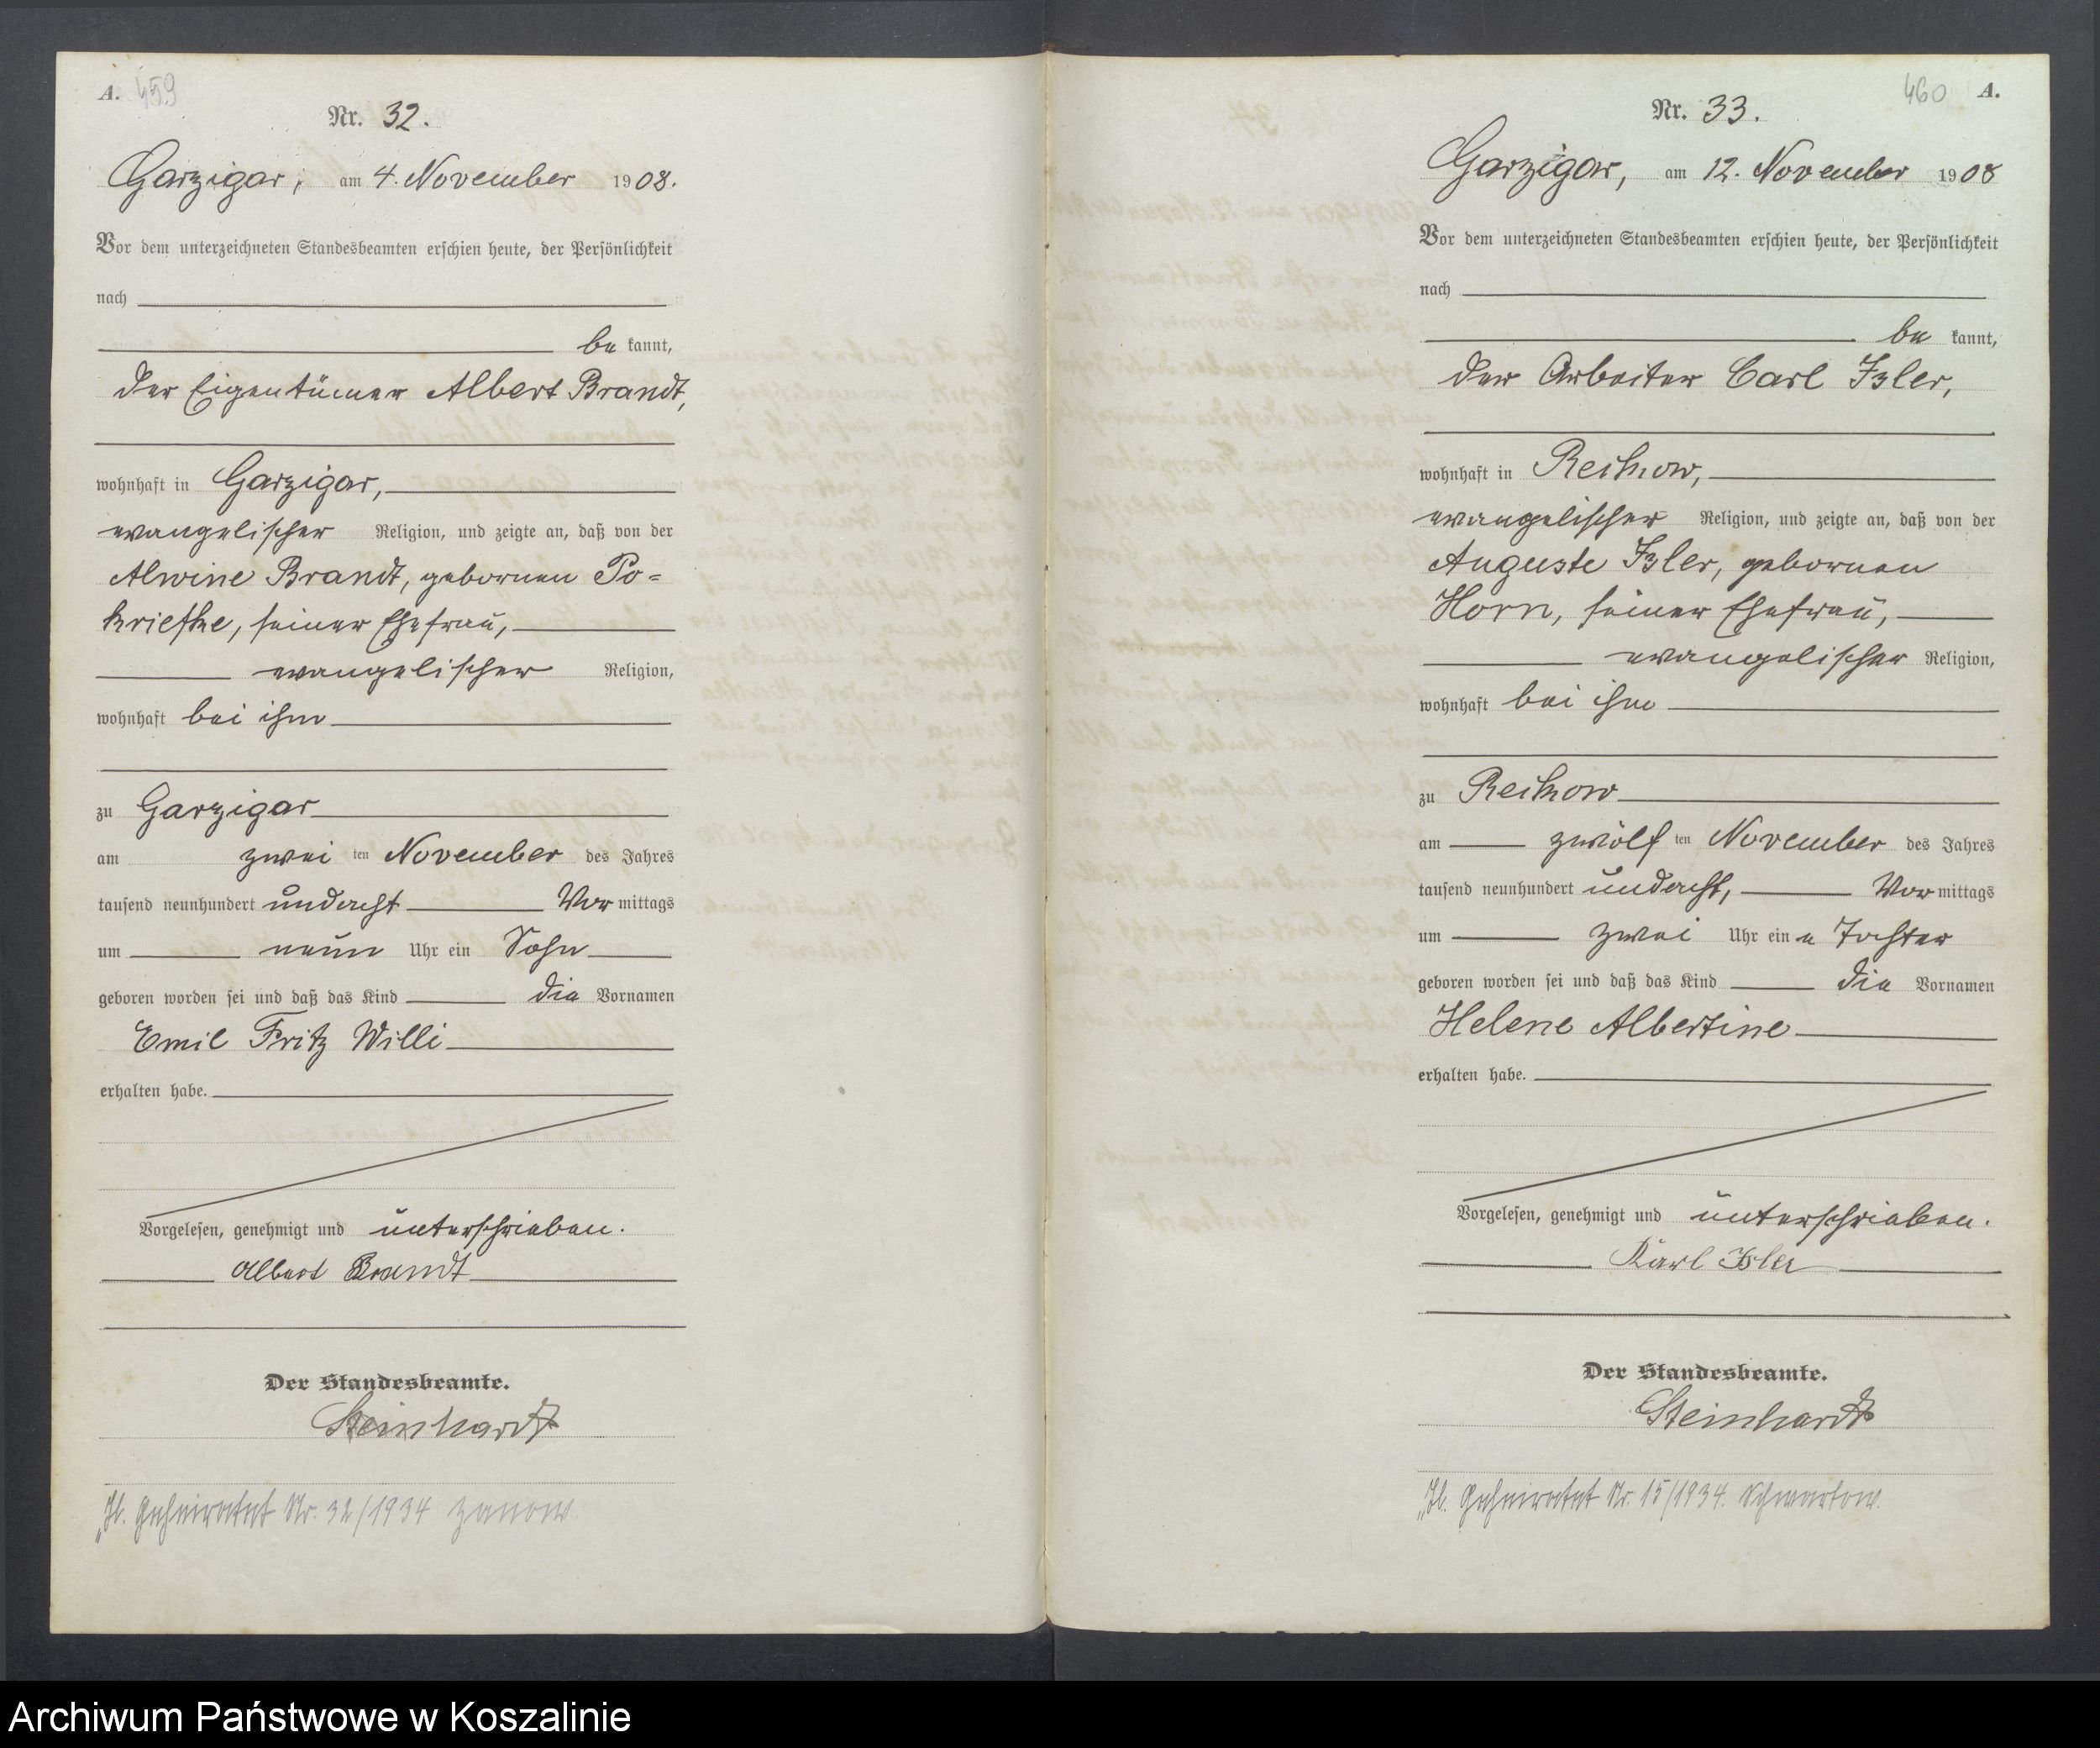 A. 459
Nr. 32.
Garzigar, am 4. November 1908.
Vor dem unterzeichneten Standesbeamten erschien heute, der Persönlichkeit
nach
be kannt,
der Eigentümer Albert Brandt,
wohnhaft in Garzigar,
evangelischer Religion, und zeigte an, daß von der
Alwine Brandt, gebornen Po=
kriefke, seiner Ehefrau,
evangelischer Religion,
wohnhaft bei ihm
zu Garzigar
am zwei ten November des Jahres
tausend neunhundert undacht Vor mittags
um neun Uhr ein Sohn
geboren worden sei und daß das Kind die Vornamen
Emil Fritz Willi
erhalten habe.
Vorgelesen, genehmigt und unterschrieben.
Albert Brandt
Der Standesbeamte.
Steinhardt
Geheiratet Nr. 32/1934 Zanow
460 A.
Nr. 33.
Garzigar, am 12. November 1908
Vor dem unterzeichneten Standesbeamten erschien heute, der Persönlichkeit
nach
be kannt,
der Arbeiter Carl Izler,
wohnhaft in Reckow,
evangelischer Religion, und zeigte an, daß von der
Auguste Izler, gebornen
Horn, seiner Ehefrau,
evangelischer Religion,
wohnhaft bei ihm
zu Reckow
am zwölf ten November des Jahres
tausend neunhundert undacht, Vor mittags
um zwei Uhr ein e Tochter
geboren worden sei und daß das Kind die Vornamen
Helene Albertine
erhalten habe.
Vorgelesen, genehmigt und unterschrieben.
Karl Isler
Der Standesbeamte.
Steinhardt
Geheiratet Nr. 15/1934. Schwartow.
Archiwum Państwowe w Koszalinie